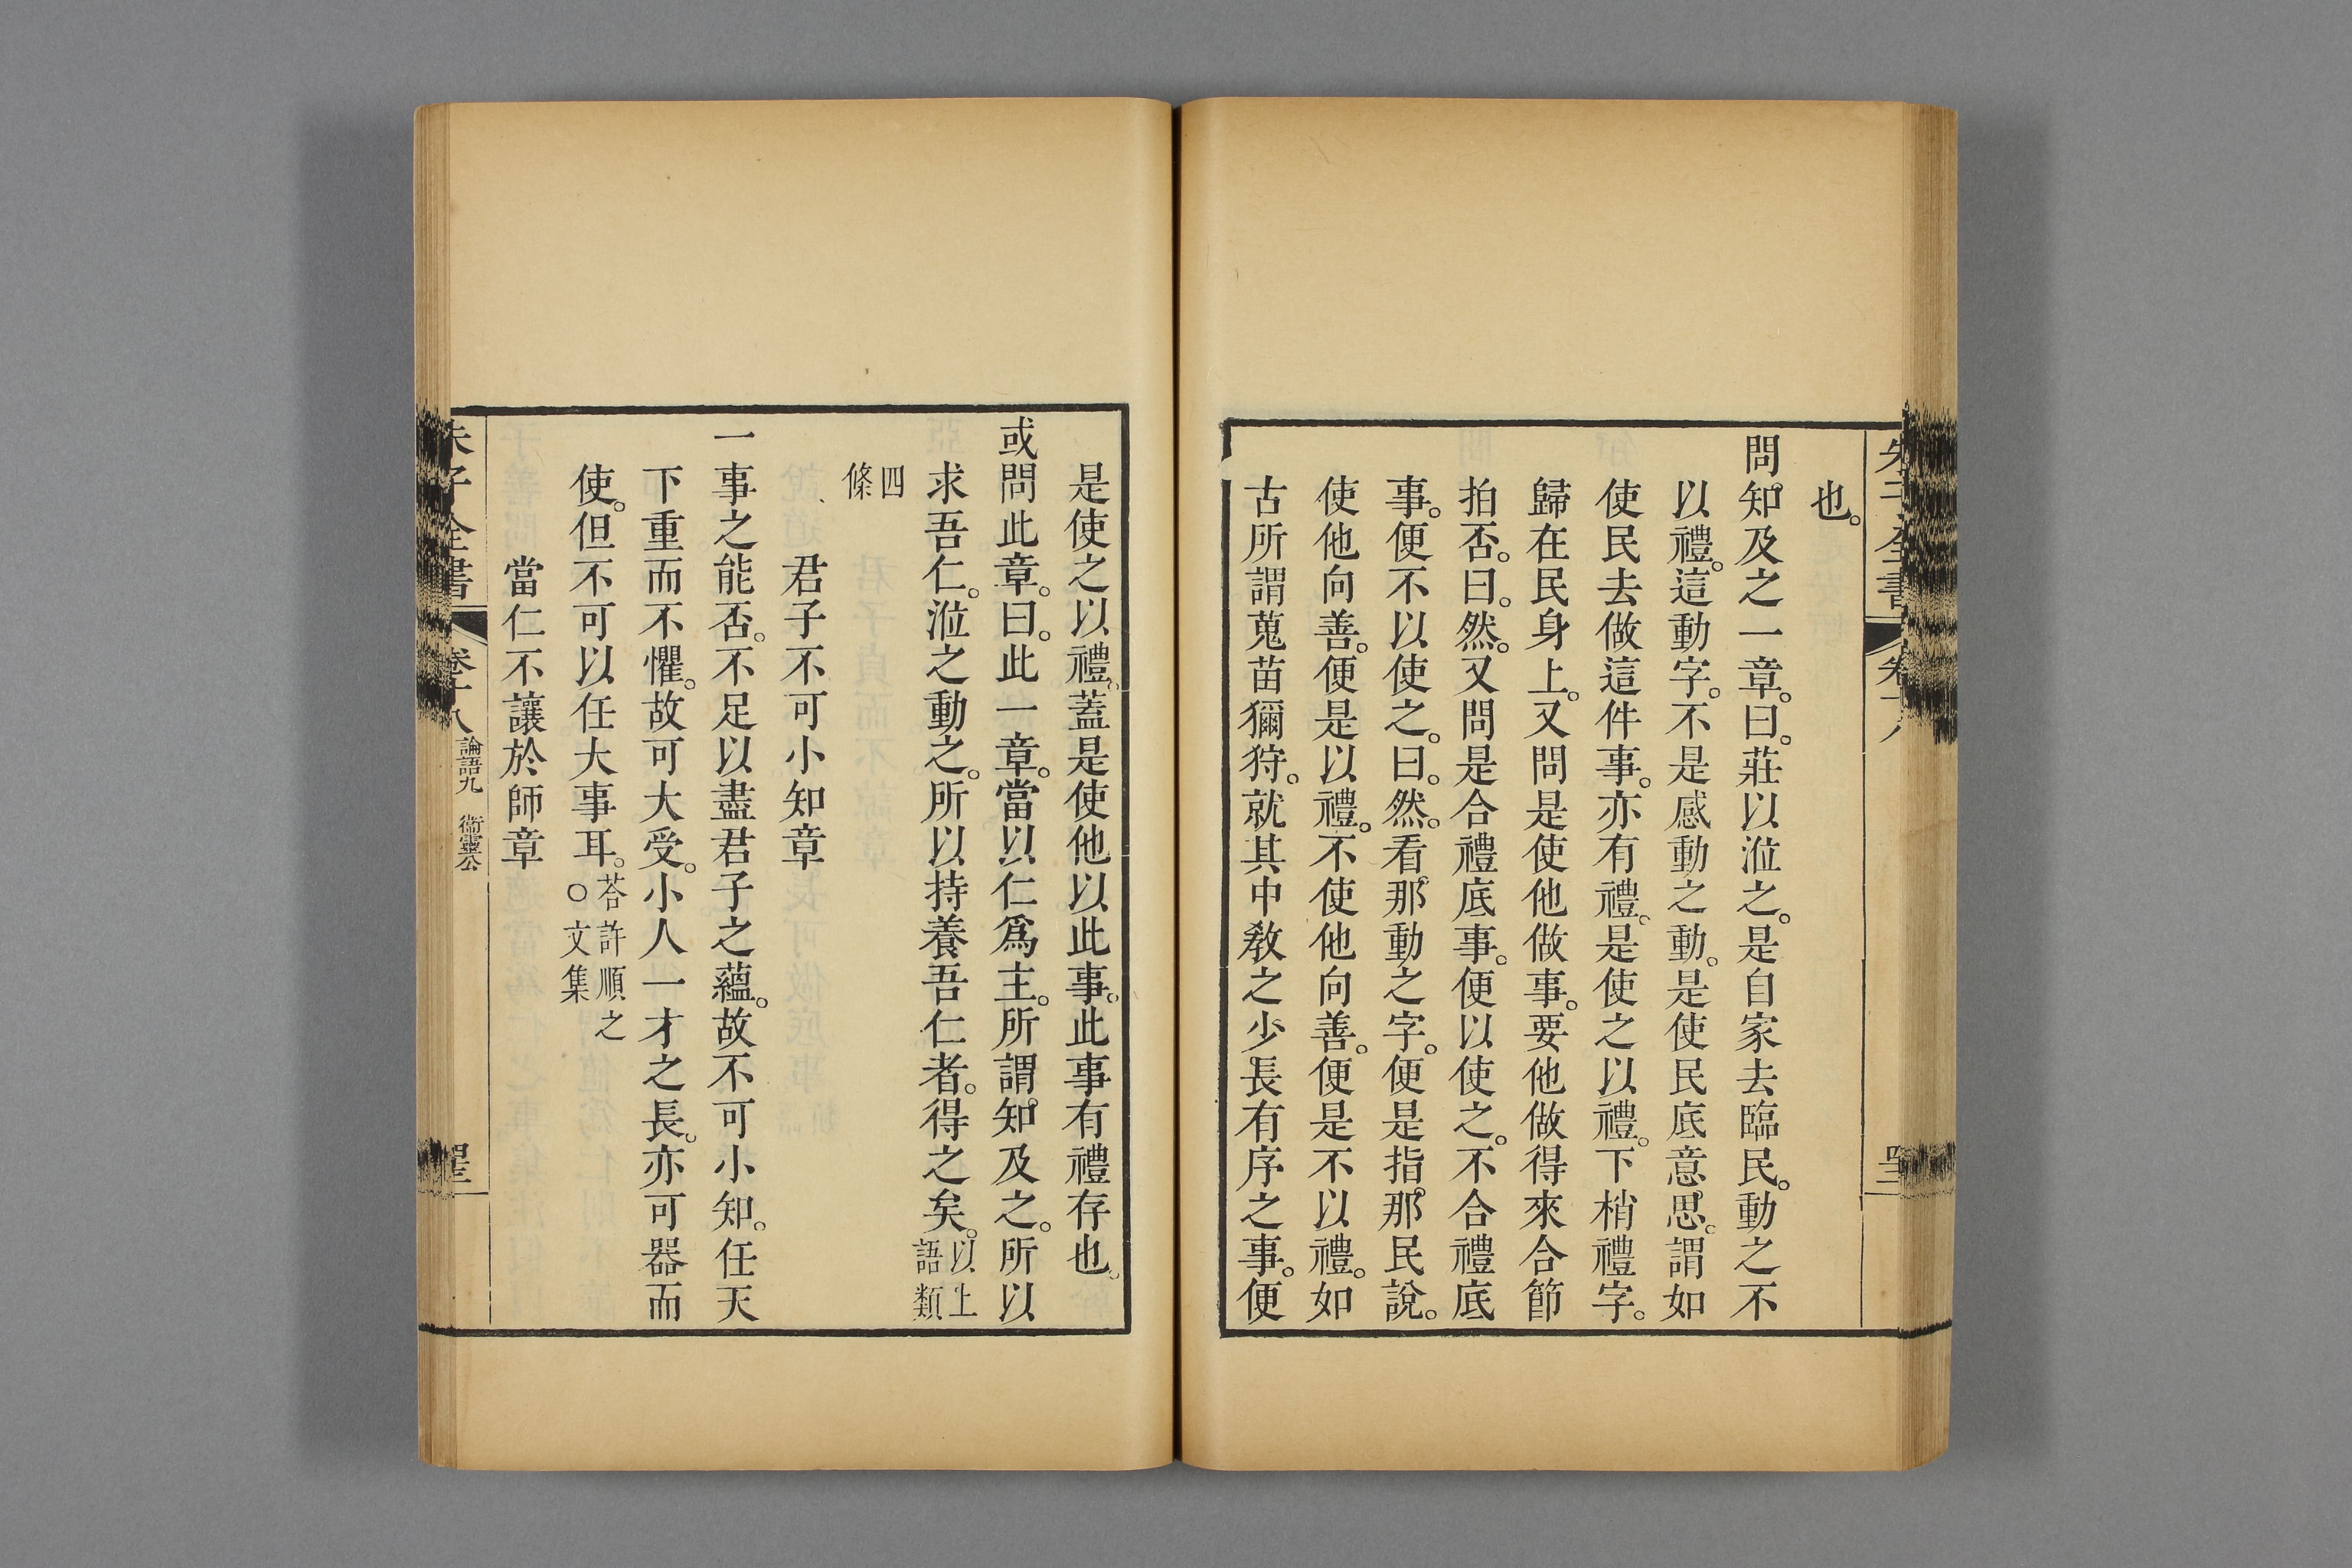 也。
問。知及之一章。曰。莊以涖之。是自家去臨民。動之不
以禮。這動字。不是感動之動。是使民底意思。謂如
使民去做這件事。亦有禮。是使之以禮。下梢禮字。
歸在民身上。又問是使他做事。要他做得來合節
拍否。曰。然。又問是合禮底事。便以使之。不合禮底
事。便不以使之。曰。然。看那動之字。便是指那民說。
使他向善。便是以禮。不使他向善。便是不以禮。如
古所謂蒐苗獮狩。就其中教之少長有序之事。便
是使之以禮。蓋是使他以此事。此事有禮存也。
或問此章。曰。此一章。當以仁爲主。所謂知及之。所以
求吾仁。涖之動之。所以持養吾仁者。得之矣。以上語類
四條
君子不可小知章
一事之能否。不足以盡君子之蘊。故不可小知。任天
下重而不懼。故可大受。小人一才之長。亦可器而
使。但不可以任大事耳。荅許順之○文集
當仁不讓於師章
朱子全書 卷十八 論語九 衞靈公